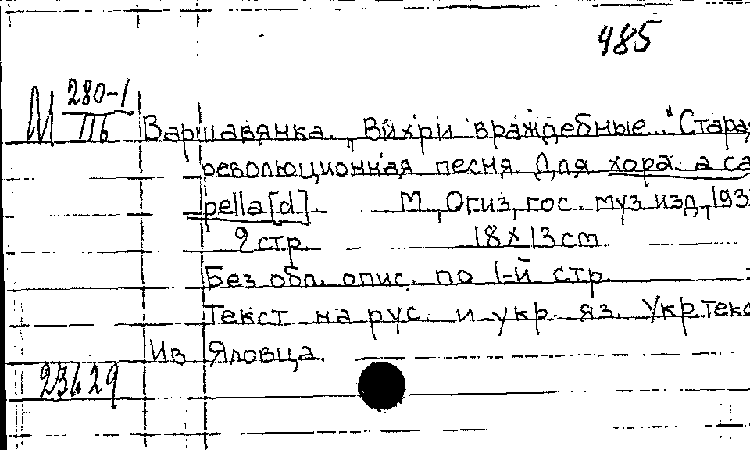 485
М 280-1/IIб
Варшавянка. „Вихри враждебные.." Старая
революционная песня Для хора a ca
pella [d]. М., Огиз, гос. муз. изд., 193
2 стр. 18x13 cm
Без обл. опис. по 1-й стр.
Текст на рус. и укр. яз. Укр текс
Ив Яловца.
23629